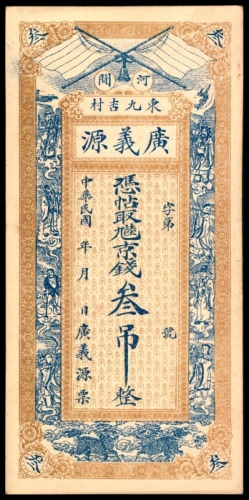 河間
東九吉村
廣義源
字第 號
憑帖取京錢叁吊整
中華民國 年 月 日廣義源票